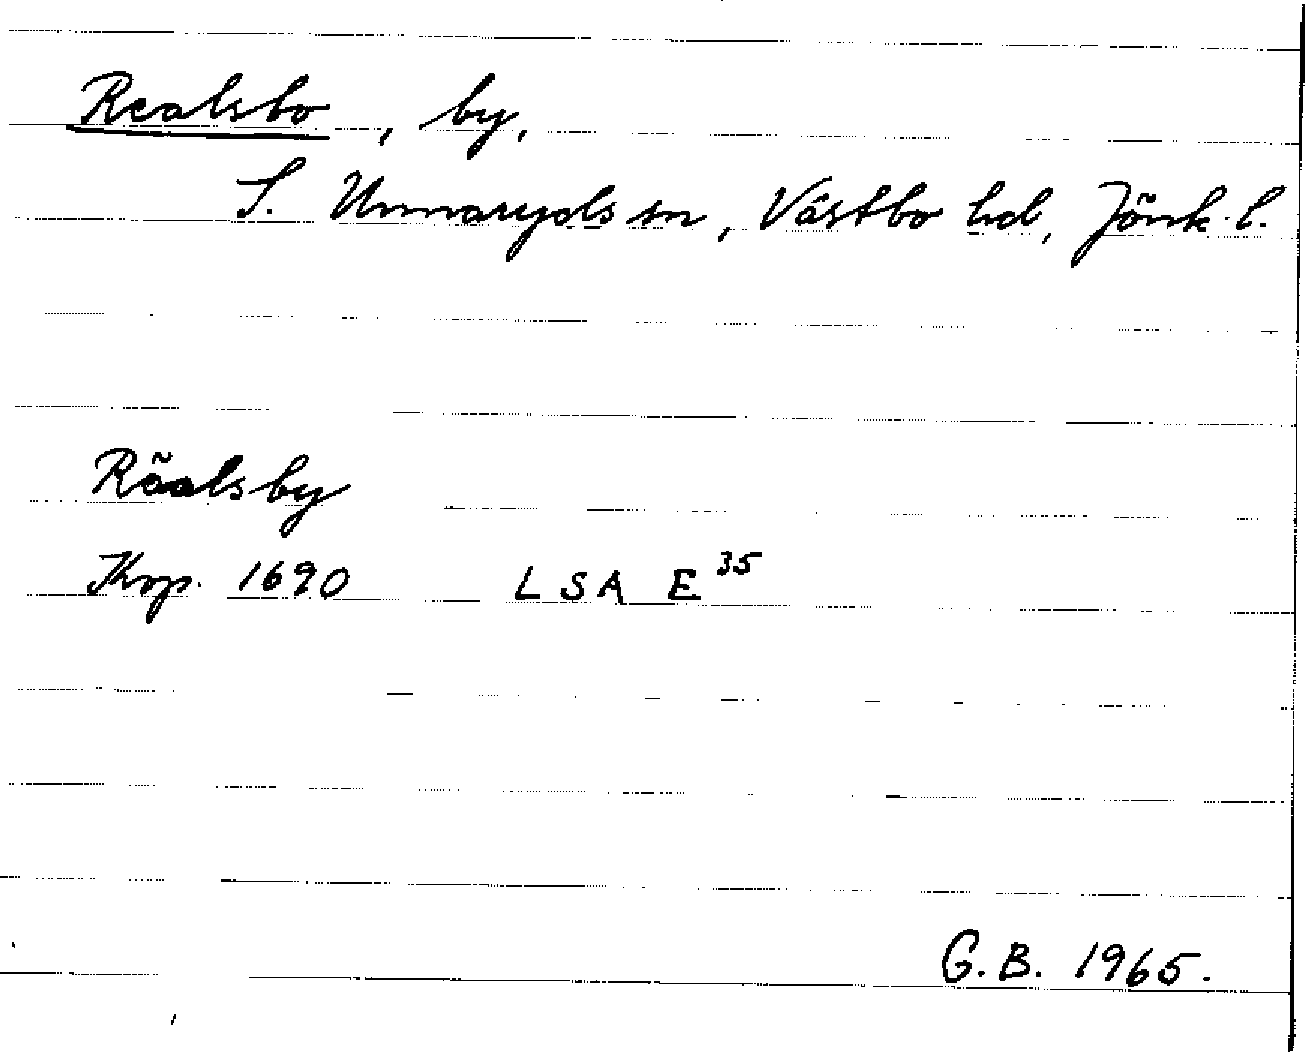 Realsbo, by,
S. Unnaryds sn, Västbo hd, Jönk. l.
Räalsby
Knp. 1690 LSA E 35
G.B. 1965.